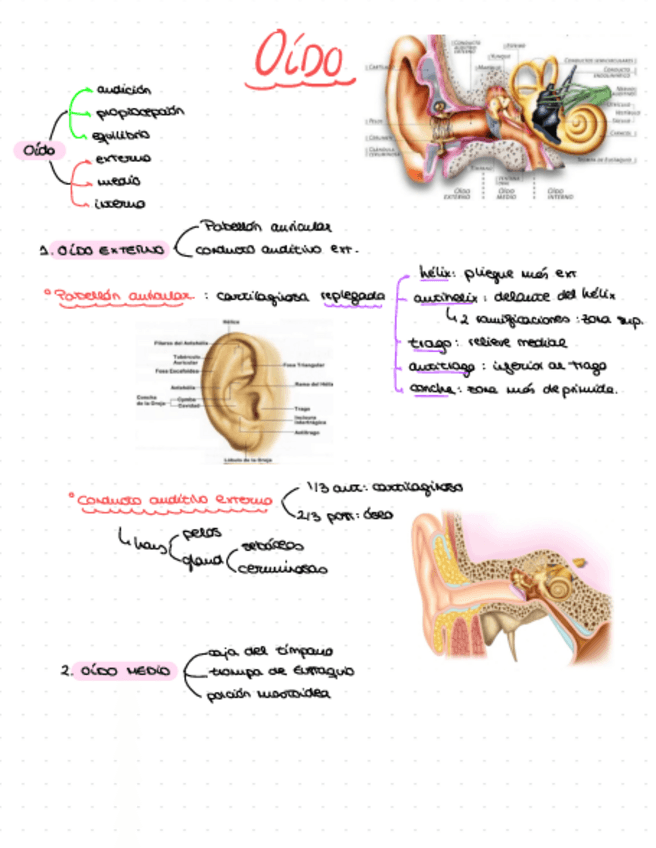 OÍDO
CONDUCTO AUDITIVO EXTERNO
YUNQUE
MARTILLO
ESTRIBO
CONDUCTOS SEMICIRCULARES
CONDUCTO ENDOLINFÁTICO
NERVIO AUDITIVO
UTRÍCULO
SÁCULO
CARACOL
TROMPA DE EUSTAQUIO
TÍMPANO
VENTANA OVAL
OÍDO EXTERNO
OÍDO MEDIO
OÍDO INTERNO
Oído
audición
propiocepción
equilibrio
externo
medio
interno
1. OÍDO EXTERNO
Pabellón auricular
conducto auditivo ext.
Pabellón auricular : cartilagiosa replegada
hélix: pliegue más ext
antihelix : delante del hélix
2 ramificaciones : zona sup.
trago: relieve medial
antitrago : inferior al trago
concha : zona más deprimida.
Hélice
Pilares del Antehélix
Tubérculo Auricular
Fosa Escafoidea
Antehélix
Concha de la Oreja
Cymba
Cavidad
Fosa Triangular
Rama del Hélix
Trago
Incisura Intertrágica
Antitrago
Lóbulo de la Oreja
Conducto auditivo externo
1/3 ant: cartilaginoso
2/3 post: óseo
hay
pelos
gland
sebáceas
ceruminosas
2. OÍDO MEDIO
caja del tímpano
trompa de Eustaquio
porción mastoidea